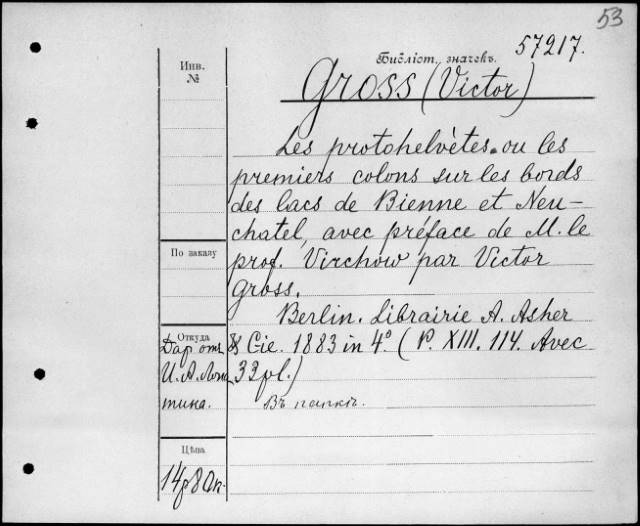 53
57217.
Библіот. значекъ.
Gross (Victor)
Инв.
№
Les protohelvètes ou les
premiers colons sur les bords
des lacs de Bienne et Neu-
chatel, avec préface de M. le
prof. Virchow par Victor
Gross.
Berlin. Librairie A. Asher
& Cie. 1883 in 4º. (P. XIII. 114. Avec
33 pl.)
Въ папкѣ.
По заказу
Откуда
Даръ отъ
И. А.
тина.
Цѣна
14р 80к.